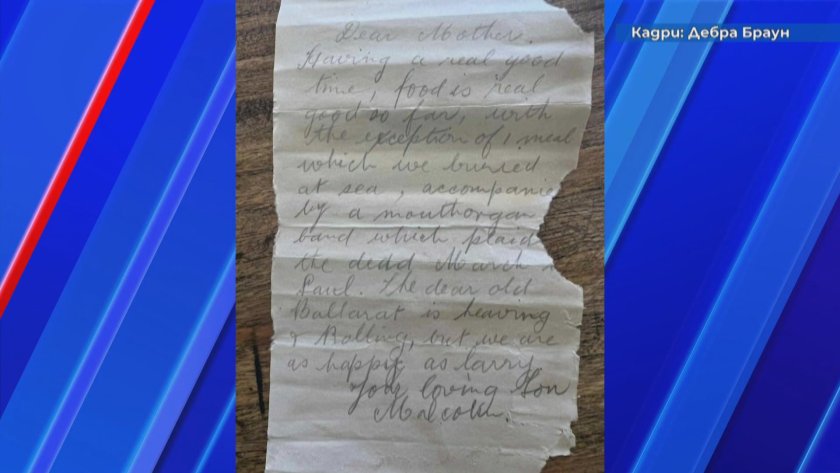 Кадри: Дебра Браун
Dear Mother,
Having a real good
time, food is real
good so far, with
the exception of 1 meal
which we buried
at sea, accompanie
by a mouthorgan
band which plaid
the dead March
Saul. The dear old
Ballarat is heaving
& Rolling, but we are
as happy as larry
Your loving Son
Malcolm.